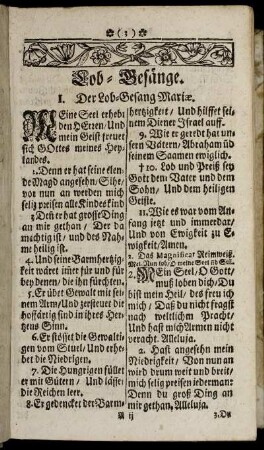 (3)
Lob-Gesänge.
I. Der Lob-Gesang Mariæ.
MEine Seel erhebt
den HErren/ Und
mein Geist freuet
sich GOttes meines Hey-
landes.
2. Denn er hat seine elen-
de Magd angesehn/ Sihe/
vor nun an werden mich
selig preisen alle Kindeskind
3. Deñ er hat grosse Ding
an mir gethan/ Der da
mächtig ist/ und des Nah-
me heilig ist.
4. Und seine Barmhertzig-
keit wäret im̃er für und für
bey denen/ die ihn fürchten.
5. Er übet Gewalt mit sei-
nem Arm/ Und zerstreuet die
hoffärtig sind in ihres Her-
tzens Sinn.
6. Er stösset die Gewalti-
gen vom Stuel/ Und erhe-
bet die Niedrigen.
7. Die Hungrigen füllet
er mit Gütern/ Und lässet
die Reichen leer.
8. Er gedencket der Barm-
hertzigkeit/ Und hilffet sei-
nem Diener Israel auff.
9. Wie er geredt hat un-
sern Vätern/ Abraham uñ
seinem Saamen ewiglich.
† 10. Lob und Preiß sey
Gott dem Vater und dem
Sohn/ Und dem heiligen
Geiste.
11. Wie es war von An-
fang jetzt und immerdar/
Und von Ewigkeit zu E-
wigkeit/ Amen.
2. Das Magnificat Reimweiß.
Mel. Nun lob/ O meine Seel
2. MEin Seel/ O Gott/
muß loben dich/ Du
bist mein Heil/ des freu ich
mich/ Daß du nicht fragst
nach weltlichem Pracht/
Und hast mich Armen nicht
veracht. Alleluja.
2. Hast angesehn mein
Niedrigkeit/ Von nun an
wird drum weit und breit/
mich selig preisen jederman:
Denn du groß Ding an
mir gethan, Alleluja.
A ij
3. Du